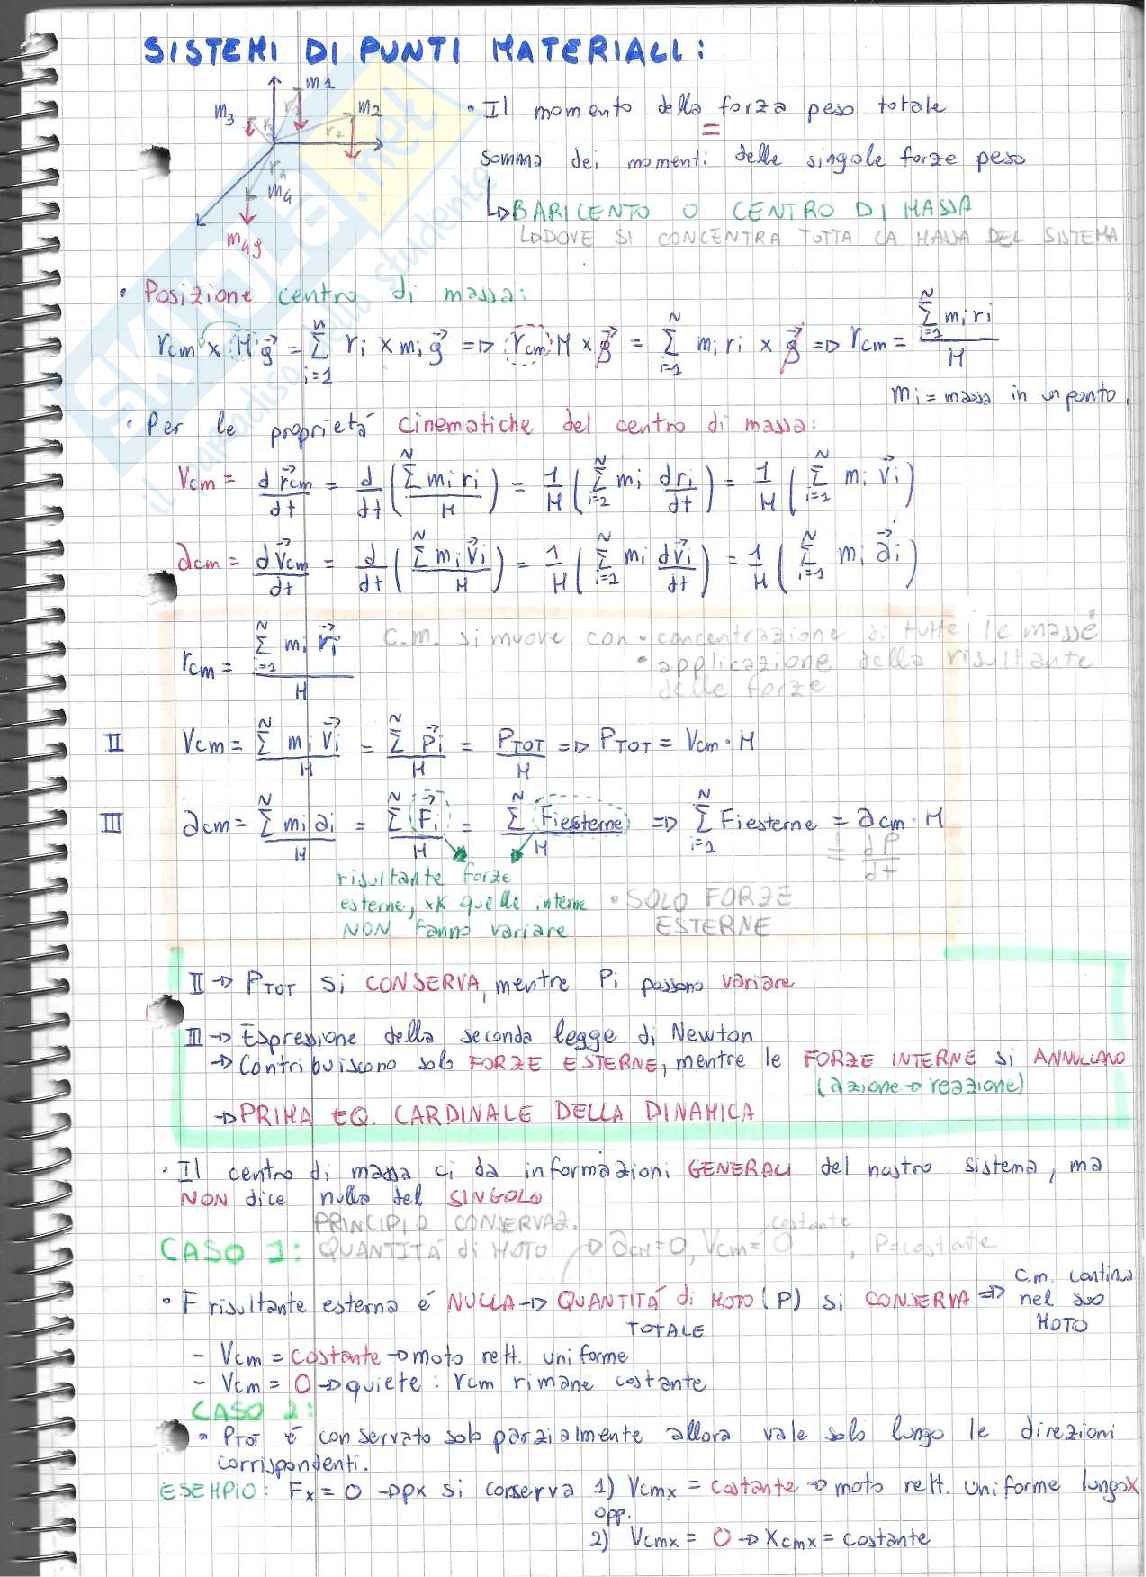 SISTEMI DI PUNTI MATERIALI:
m1
m3
m2
r2
m4
m4g
• Il momento della forza peso totale
=
somma dei momenti delle singole forze peso
↳ BARICENTO O CENTRO DI MASSA
↳ DOVE SI CONCENTRA TUTTA LA MASSA DEL SISTEMA
• Posizione centro di massa:
rcm × M g⃗ = Σ_{i=1}^{n} ri × mi g⃗ => rcm M × g⃗ = Σ_{i=1}^{N} mi ri × g⃗ => rcm = Σ_{i=1}^{N} mi ri / M
mi = massa in un punto.
• Per le proprietá cinematiche del centro di massa:
Vcm = d r⃗cm/dt = d/dt (Σ^{N} mi ri / M) = 1/M (Σ_{i=1}^{N} mi dri/dt) = 1/M (Σ_{i=1}^{N} mi v⃗i)
acm = d v⃗cm/dt = d/dt (Σ^{N} mi v⃗i / M) = 1/M (Σ_{i=1}^{N} mi dv⃗i/dt) = 1/M (Σ_{i=1}^{N} mi a⃗i)
rcm = Σ_{i=1}^{N} mi r⃗i / M
C.M. si muove con • concentrazione di tutte le masse
• applicazione della risultante
delle forze
II Vcm = Σ^{N} mi v⃗i / M = Σ^{N} p⃗i / M = PTOT / M => PTOT = Vcm · M
III acm = Σ^{N} mi ai / M = Σ^{N} F⃗i / M = Σ^{N} Fiesterne / M => Σ_{i=1}^{N} Fiesterne = acm · M
= dP/dt
risultante forze
esterne, xk quelle interne
NON fanno variare
• SOLO FORZE
ESTERNE
II → PTOT si CONSERVA, mentre Pi possono variare
III → Espressione della seconda legge di Newton
→ Contribuiscono solo FORZE ESTERNE, mentre le FORZE INTERNE si ANNULLANO
(azione → reazione)
→ PRIMA EQ. CARDINALE DELLA DINAMICA
• Il centro di massa ci da informazioni GENERALI del nostro sistema, ma
NON dice nulla del SINGOLO
PRINCIPIO CONSERVAZ.
CASO 1: QUANTITÁ di MOTO → acm = 0, Vcm = costante 0, P = costante
• F risultante esterna é NULLA → QUANTITÁ di MOTO (P) si CONSERVA => c.m. continua
nel suo
MOTO
TOTALE
- Vcm = costante → moto rett. uniforme
- Vcm = 0 → quiete: rcm rimane costante
CASO 2:
• Ptot é conservato solo parzialmente allora vale solo lungo le direzioni
corrispondenti.
ESEMPIO: Fx = 0 → px si conserva 1) Vcmx = costante → moto rett. uniforme lungo x
opp.
2) Vcmx = 0 → Xcmx = costante
skuola.net
il paradiso dello studente